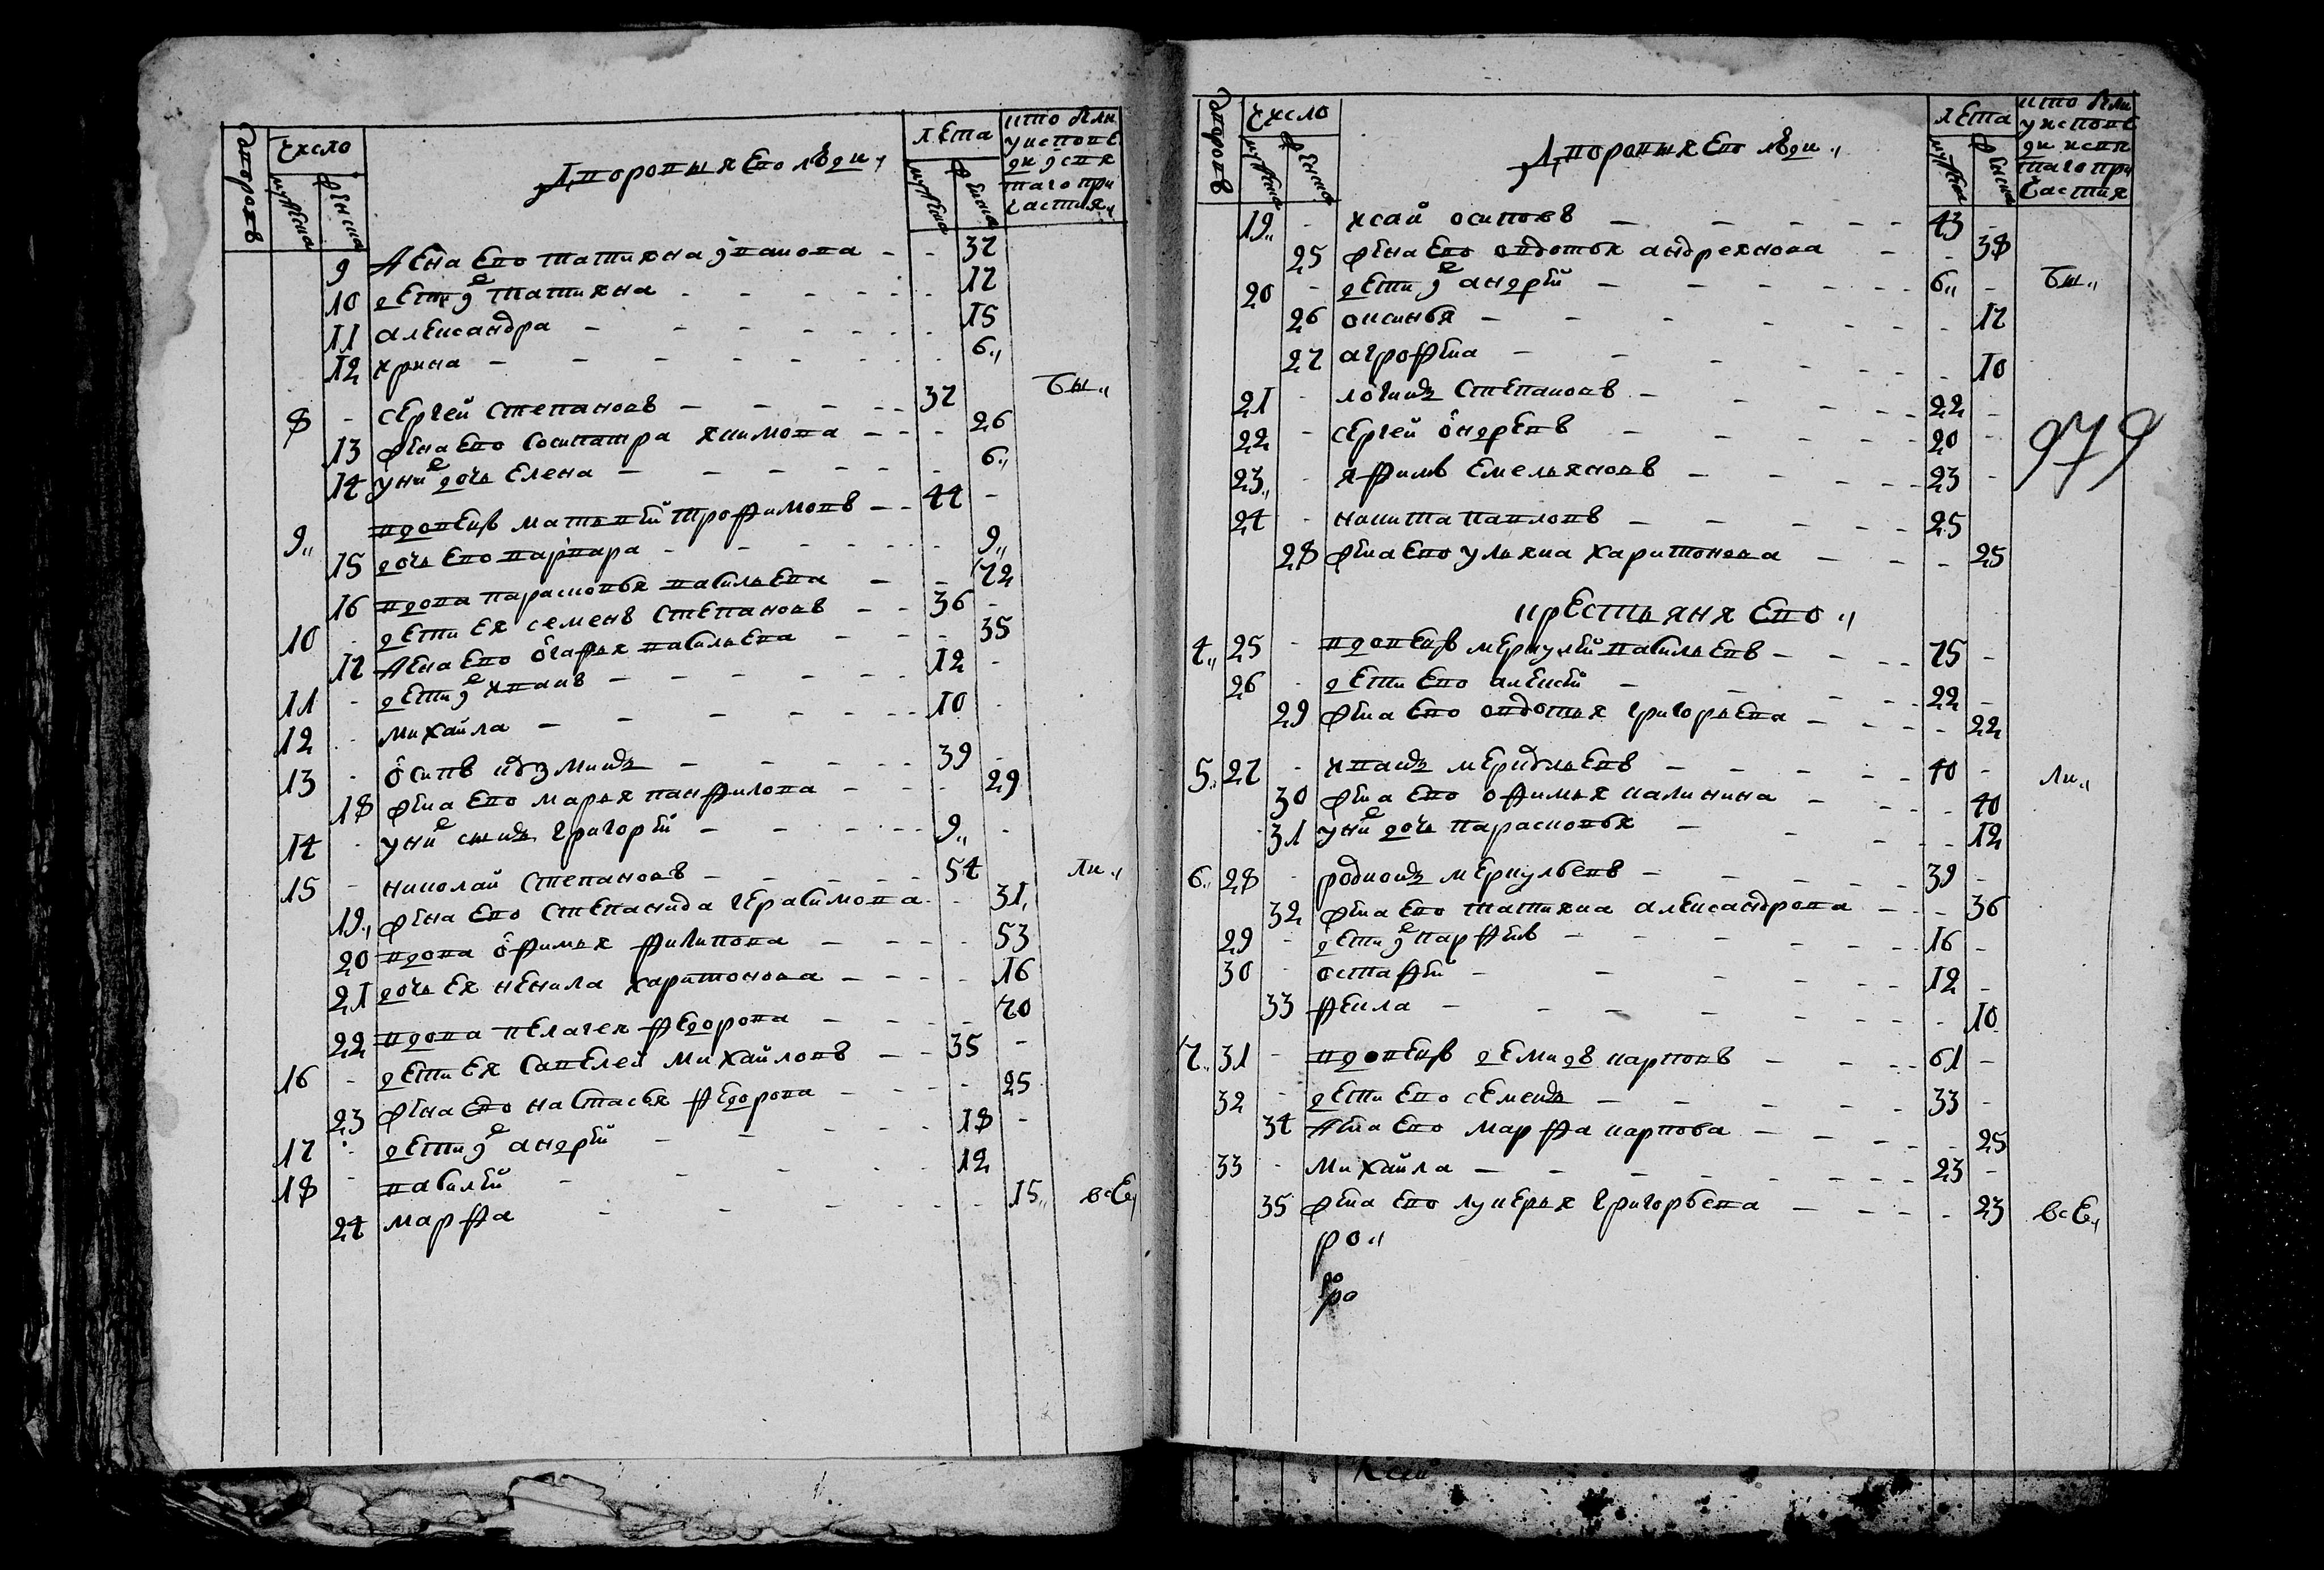 дворовъ
число
мужеска
женска
Дворовыя ево люди
лета
мужеска
женска
кто были
у испове
ди и свя
таго при
частия
9 жена ево татияна иванова - - 37
10 дети ихъ татияна - - - - - - 17
11 александра - - - - - - 15
12 ирина - - - - - - 6
8 - сергей степановъ - - - - 37 бы
13 жена ево сосипатра якимова - - - 26
14 у них дочь елена - - - - - 6
9 вдовецъ матвей трофимовъ - - 44 -
15 дочь ево варвара - - - - - - 9
16 вдова парасковья васильева - - 72
10 - дети ея семенъ степановъ - - 36 -
17 жена ево агафья васильева - - - 35
11 - дети ихъ иванъ - - - - - 17 -
12 - михайла - - - - - - 10 -
13 - осипъ кузминъ - - - - 39 -
18 жена ево марья панфилова - - - 29
14 - у них сынъ григорей - - - - 9 -
15 - николай степановъ - - - - 54 ли
19 жена ево степанида герасимова - - 31
20 вдова офимья филипова - - - - 53
21 дочь ея ненила харитонова - - - 16
22 вдова пелагея федорова - - - - 70
16 - дети ея савелей михайловъ - - 35 -
23 жена ево настасья федорова - - - - 25
17 - дети ихъ андрей - - - - - 18 -
18 - василей - - - - - 12
24 марфа - - - - - - 15 все
дворовъ
число
мужеска
женска
Дворовыя ево люди
лета
мужеска
женска
кто были
у испове
ди и свя
таго при
частия
19 - исай осиповъ - - - - - 43 -
25 жена ево овдотья андреянова - - 38
20 - дети ихъ андрей - - - - - - 6 - бы
26 аксинья - - - - - - - 17
27 агрофена - - - - - - 10
21 - логинъ степановъ - - - - - 22 -
22 - сергей андреевъ - - - - - 20 -
979
23 - яфимъ емельяновъ - - - - - 23 -
24 - никита павловъ - - - - - 25
28 жена ево ульяна харитонова - - - 25
крестьяня ево
4 25 - вдовецъ меркулей васильевъ - - - - 75 -
26 - дети ево алексей - - - - 22 -
29 жена ево овдотья григорьева - - - - 22
5 27 - иванъ меркульевъ - - - - - 40 - ли
30 жена ево офимья калинина - - - 40
31 у них дочь парасковья - - - - 12
6 28 - родионъ меркульевъ - - - - - 39 -
32 жена ево татияна александрова - - - 36
29 - дети ихъ парфенъ - - - - - - 16 -
30 - остафей - - - - - 12 -
33 фекла - - - - - - - 10
7 31 - вдовецъ демидъ карповъ - - - - 61 -
32 - дети ево семенъ - - - - - 33 -
34 жена ево марфа карпова - - - - - 25
33 - михайла - - - - - - - 23 -
35 жена ево лукерья григорьева - - - - 23 все
ро
ро